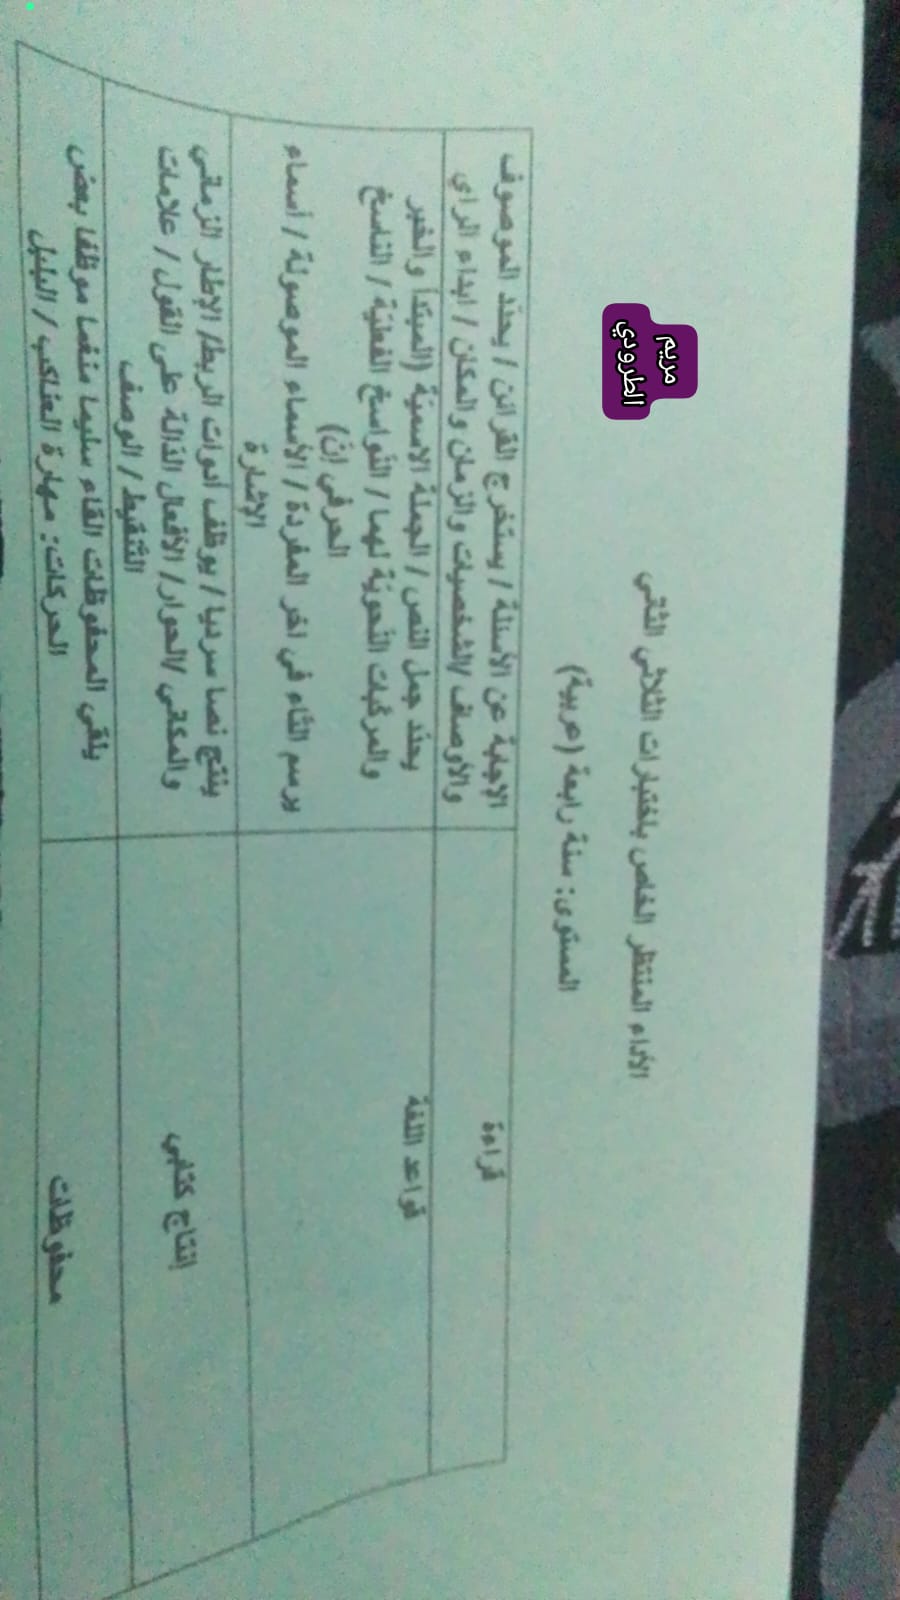 مريم
الطرودي
الأداء المنتظر الخاص باختبارات الثلاثي الثاني
المستوى: سنة رابعة (عربية)
قراءة
الإجابة عن الأسئلة / يستخرج القرائن / يحدّد الموصوف
والأوصاف /الشخصيات والزمان والمكان / ابداء الراي
قواعد اللغة
يحدّد جمل النص / الجملة الاسميّة (المبتدأ والخبر
والمركبات النّحويّة لهما / النّواسخ الفعليّة / الناسخ
الحرفي إنّ)
يرسم التاء في اخر المفردة / الأسماء الموصولة / أسماء
الإشارة
إنتاج كتابي
ينتج نصا سرديا / يوظف أدوات الربط/ الإطار الزماني
والمكاني /الحوار/ الأفعال الدّالة على القول / علامات
التّنقيط / الوصف
محفوظات
يلقي المحفوظات القاء سليما منغما موظفا بعض
الحركات: مهارة العناكب / البلبل